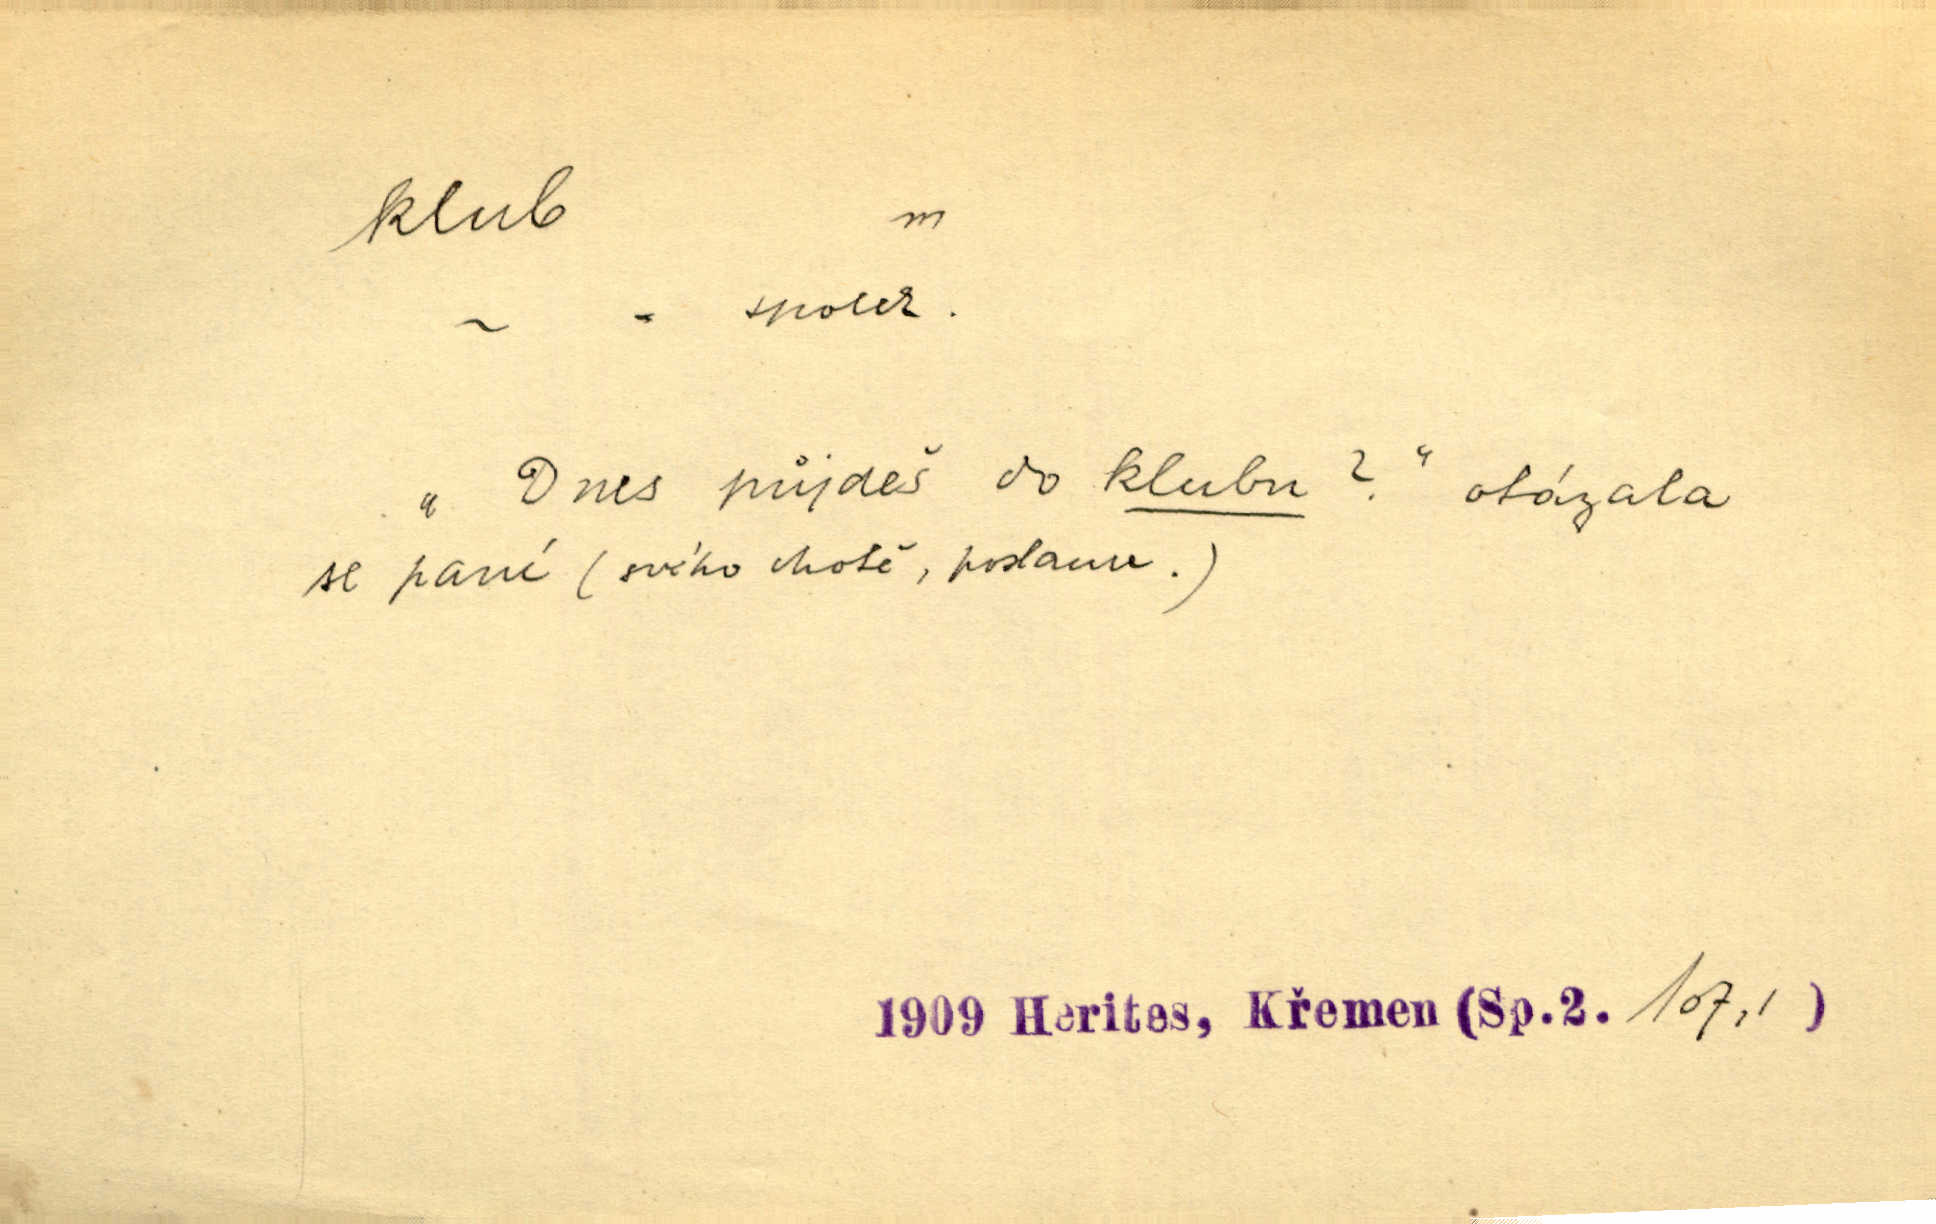 klub m
~ - společ.
„Dnes půjdeš do klubu?“ otázala
se paní (svého chotě, poslance.)
1909 Herites, Křemen (Sp.2. 107,1)